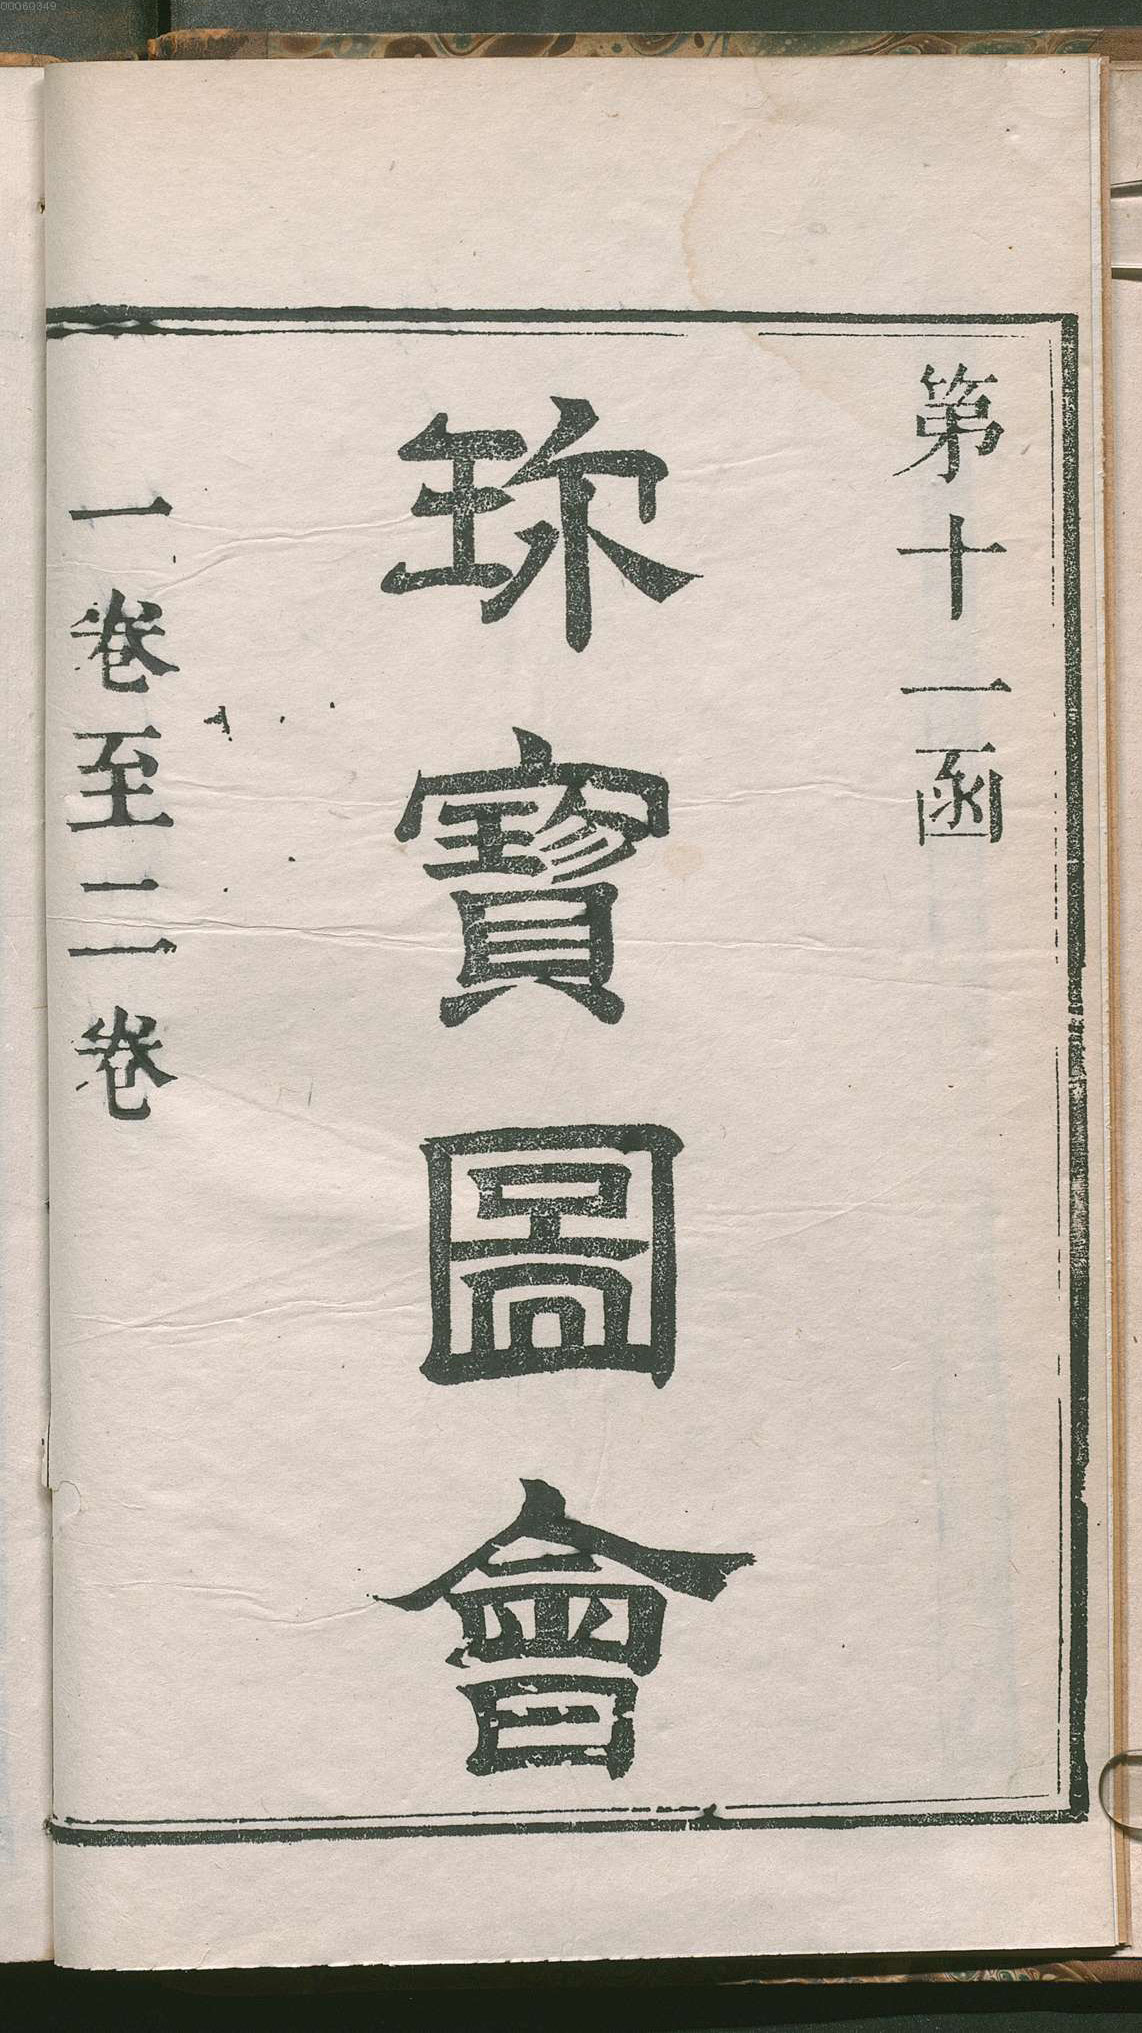 00060349
第十一函
珎寶圖會
一卷至二卷